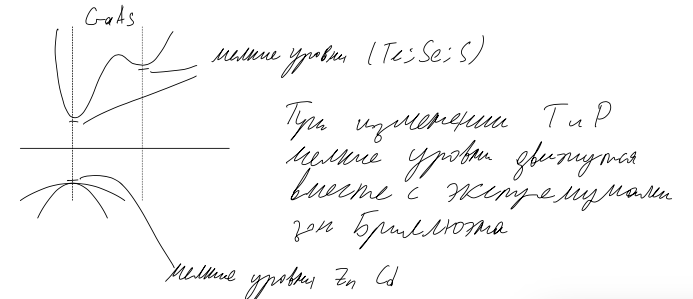 GaAs
мелкие уровни (Te; Se; S)
При изменении T и P
мелкие уровни движутся
вместе с экстремумами
зон Бриллюэна
мелкие уровни Zn Cd